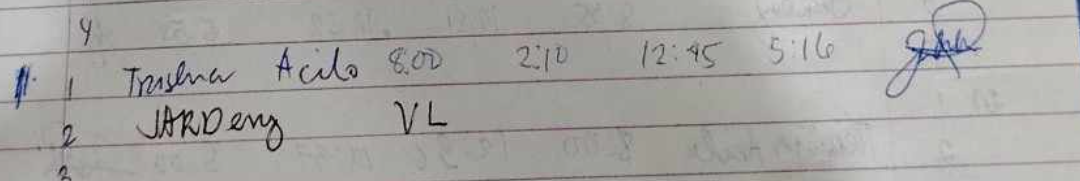 4
1 Acilo 8:00 2:10 12:45 5:16
2 JARDeng VL
3